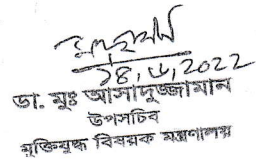 ১৪,৬,2022
ডা. মুঃ আসাদুজ্জামান
উপসচিব
মুক্তিযুদ্ধ বিষয়ক মন্ত্রণালয়